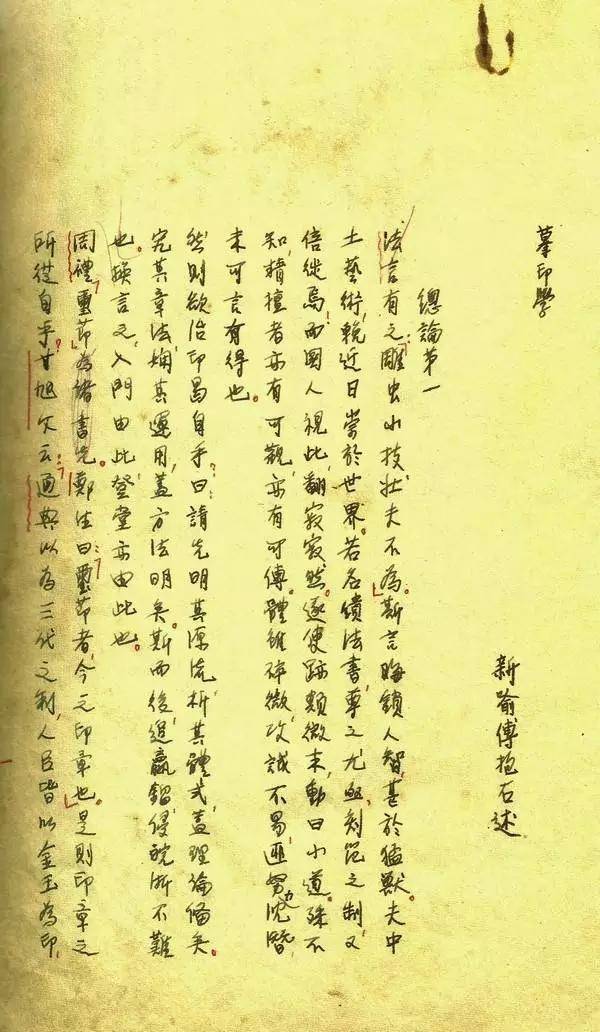 摹印學
新喻傅抱石述
總論第一
法言有之雕虫小技壯夫不為斯言晦鎖人智甚於猛獸夫中
土藝術輓近日崇於世界若名繢法書尊之尤亟剞劂之制又
倍蓰焉而國人視此翻寂寂然遂使跡類微末動曰小道殊不
知精擅者亦有可觀亦有可傳體雖碎微攻誠不易匪努力沈
未可言有得也
然則欲治印曷自乎曰請先明其源流析其體式蓋理論備矣
究其章法嫻其運用蓋方法明矣斯而後追嬴鎦侵皖浙不難
也諛言之入門由此登堂亦由此也
周禮璽節為諸書先鄭注曰璽節者今之印章也是則印章之
所從自乎甘旭又云通典以為三代之制人臣皆以金玉為印